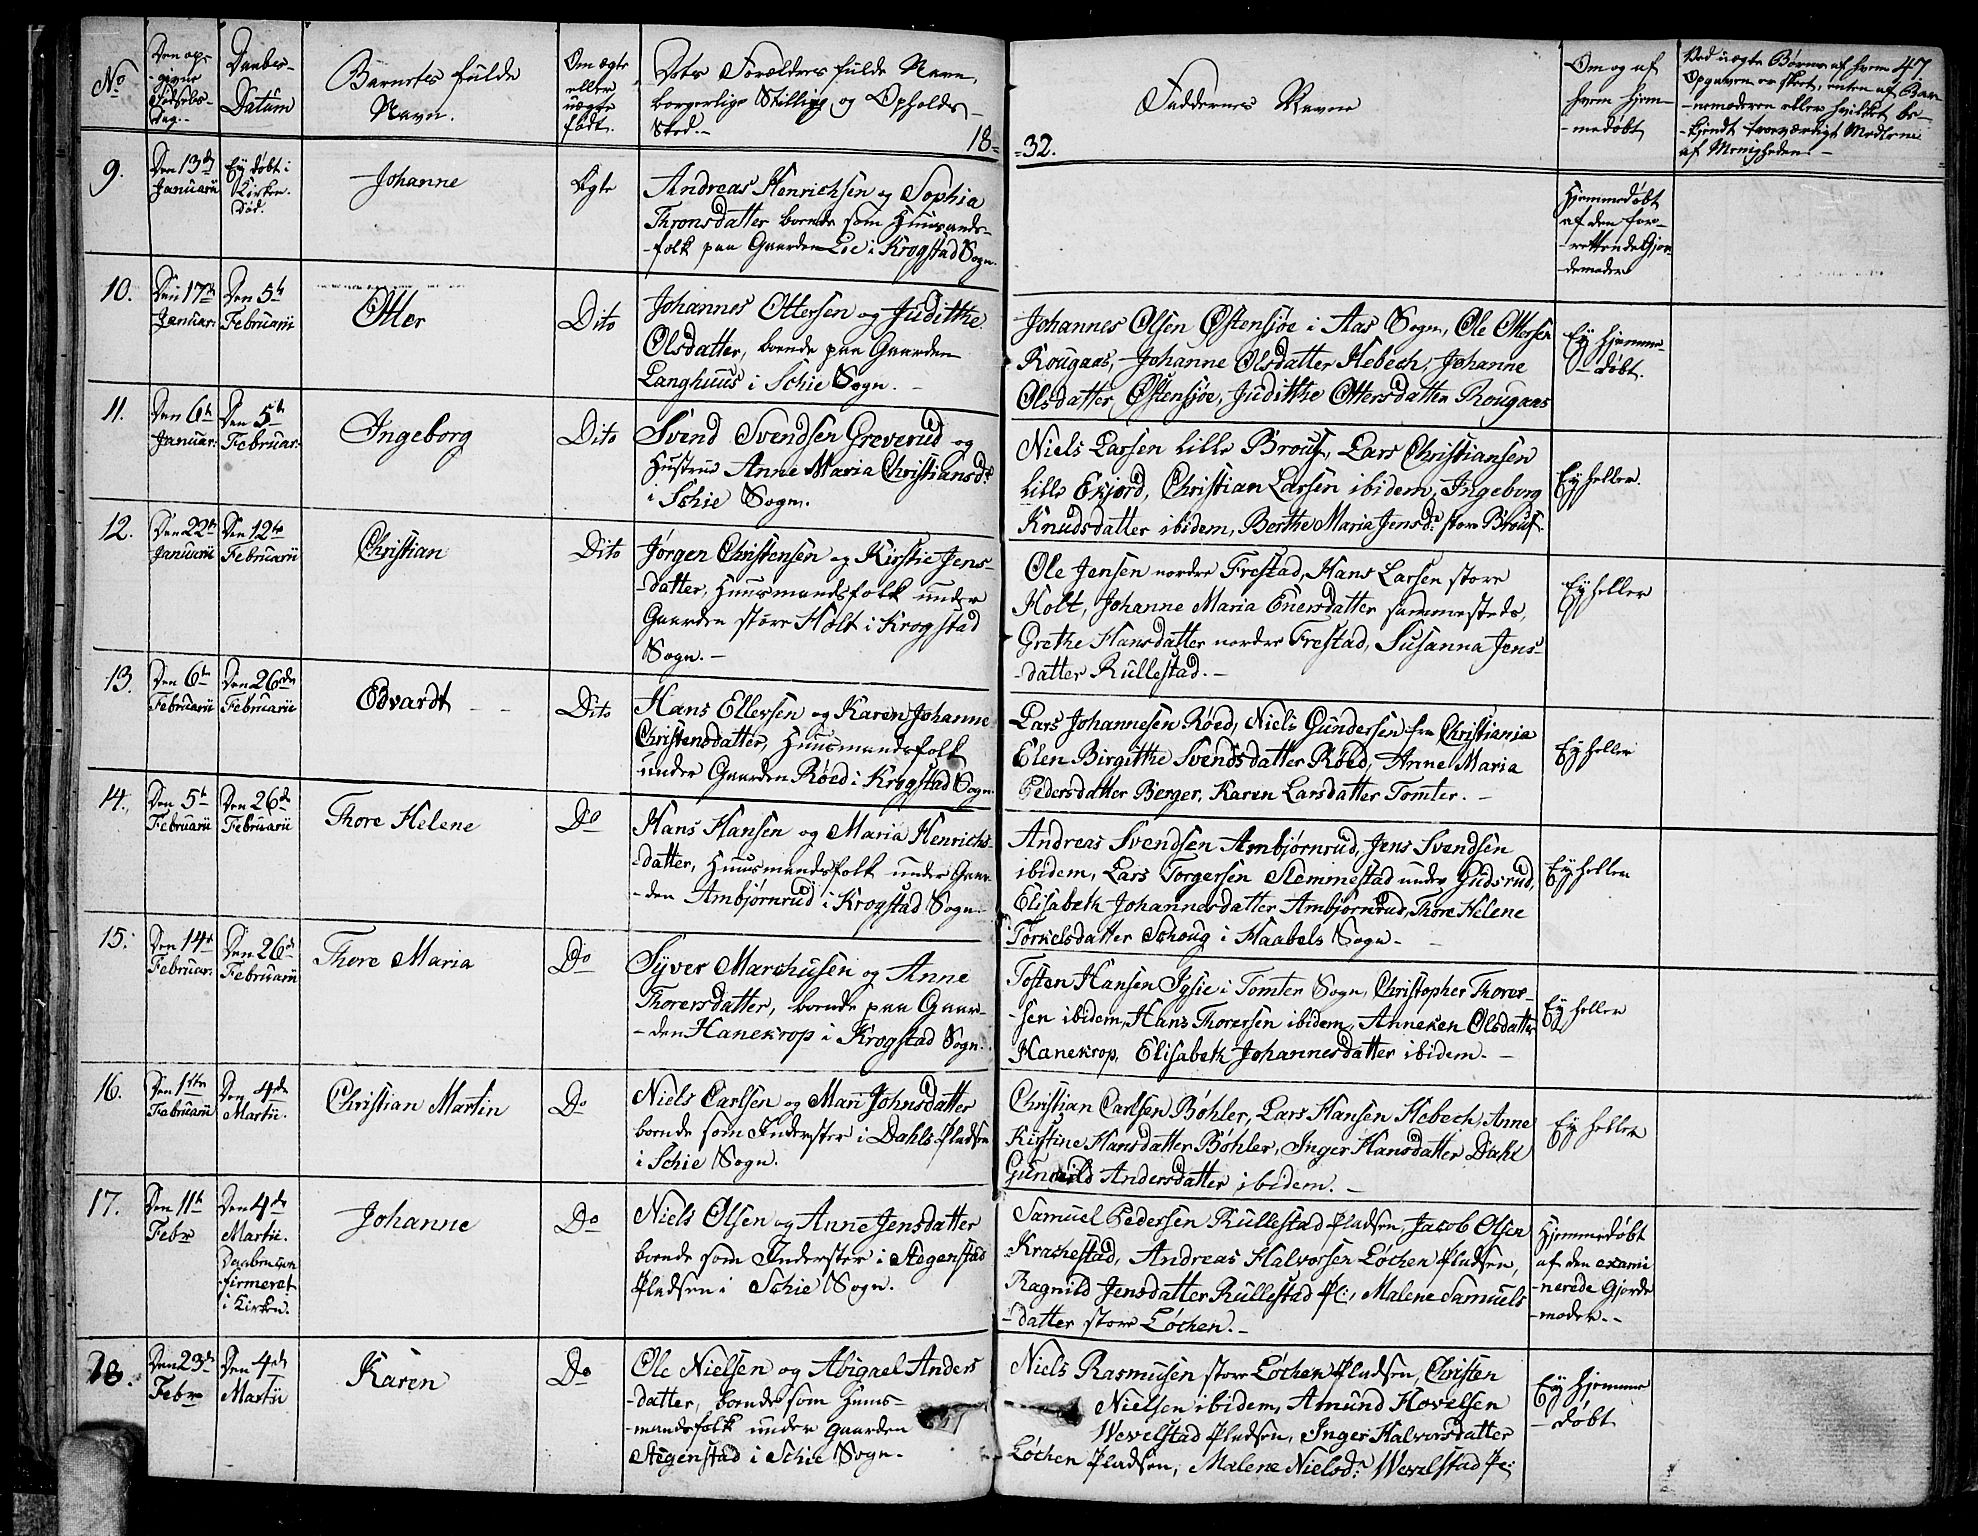 No
Den op-
-givne
Fødsels-
dag.
Daabs-
Datum
Barnets fulde
Navn.
Om ægte
eller
uægte
født.
Dets Forældres fulde Navne,
borgerlige Stilling og Opholds-
Sted.-
18=
=32.
Faddernes Navne
Om og af
hvem hjem-
-medøbt
Ved uægte Børn af hvem 47
Opgaven er skeet, enten af Bar-
-nemoderen eller hvilket be-
-kjendt troværdigt Medlem
af Menigheden.-
9.
Den 13de
Januarii
Ey døbt i
Kirken.
Død.
Johanne
Ægte
Andreas Henrichsen og Sophia
Thronsdatter boende som Huusmands-
-folk paa Gaarden Lie i Krogstad Sogn.
Hjemmedøbt
af den for-
-rettende Gjor-
demoder
10.
Den 17de
Januar:
Den 5te
Februarii
Otter
Dito
Johannes Ottersen og Judithe
Olsdatter, boende paa Gaarden
Langhuus i Schie Sogn.-
Johannes Olsen Østensjøe i Aas Sogn, Ole Ottersen
Rougaas, Johanne Olsdatter Hebech, Johanne
Olsdatter Østensjøe, Judithe Ottersdatter Rougaas
Ey hjemme-
-døbt.
11.
Den 6te
Januar:
Den 5te
Februar:
Ingeborg
Dito
Svend Svendsen Greverud og
Hustrue Anne Maria Christiansd:
i Schie Sogn.
Niels Larsen lille Brous, Lars Christiansen
lille Ekjord, Christian Larsen ibidem, Ingeborg
Knudsdatter ibidem, Berthe Maria Jensd: store Brous.
Ey heller.
12.
Den 22de
Januarii
Den 12te
Februarii
Christian
Dito
Jørgen Christensen og Kirstie Jens-
-datter, Huusmandsfolk under
Gaarden store Holt i Krogstad
Sogn.-
Ole Jensen nordre Frestad, Hans Larsen store
Holt, Johanne Maria Enersdatter sammesteds,
Grethe Hansdatter nordre Frestad, Susanna Jens-
-datter Rullestad.-
Ey heller
13.
Den 6te
Februarii
Den 26de
Februarii
Edvardt
Dito
Hans Ellersen og Karen Johanne
Christensdatter, Huusmandsfolk
under Gaarden Røed i Krogstad Sogn.
Lars Johannesen Røed, Niels Gundersen fra Christiania
Elen Birgitthe Svendsdatter Røed, Anne Maria
Pedersdatter Berger, Karen Larsdatter Tomter.-
Ey heller
14.
Den 5te
Februarii
Den 26de
Februarii
Thore Helene
Do
Hans Hansen og Maria Henrichs-
-datter, Huusmandsfolk under Gaar-
-den Ambjørnrud i Krogstad Sogn.
Andreas Svendsen Ambjørnrud, Jens Svendsen
ibidem, Lars Torgersen Slemmestad under Gudsrud,
Elisabeth Johannesdatter Ambjørnrud, Thore Helene
Torkelsdatter Schoug i Haabels Sogn-
Ey heller
15.
Den 14de
Februar:
Den 26de
Februarii
Thore Maria
Do
Syver Marchusen og Anne
Thorersdatter, boende paa Gaar-
-den Hanekrop i Krogstad Sogn.
Tosten Hansen Igsie i Tomter Sogn, Christopher Thorer-
-sen ibidem, Hans Thorersen ibidem, Anneken Olsdatter
Hanekrop, Elisabeth Johannesdatter ibidem.-
Ey heller
16.
Den 1ste
Februarii
Den 4de
Martii.
Christian Martin
Do
Niels Carlsen og Mari Johnsdatter
boende som Inderster i Dahls Pladsen
i Schie Sogn.
Christian Carlsen Bøhler, Lars Hansen Hebech, Anne
Kirstine Hansdatter Bøhler, Inger Hansdatter Dahl
Gunild Andersdatter ibidem.-
Ey heller
17.
Den 11te
Febr
Den 4de
Martii.
Daaben con
firmeret
i Kirken.
Johanne
Do
Niels Olsen og Anne Jensdatter
boende som Inderster i Stegenstad
Pladsen i Schie Sogn.
Samuel Pedersen Rullestad Pladsen, Jacob Olsen
Krachestad, Andreas Halvorsen Lochen Pladsen,
Ragnild Jensdatter Rullestad Pl:, Malene Samuels
-datter store Løchen.-
Hjemmedøbt
af den exami
-nerede Gjorde
-moder.-
18.
Den 23de
Febr
Den 4de
Martii
Karen
Do
Ole Nielsen og Abigael Anders
-datter, boende som Huus-
-mandsfolk under Gaarden
Stegenstad i Schie Sogn.
Niels Rasmusen store Løchen Pladsen, Christen
Nielsen ibidem, Amund Hovelsen
Wevelstad Pladsen, Inger Halvorsdatter
Løchen Pladsen, Malene Nielsd: Wevelstad Pl:
Ey hjemme
-døbt